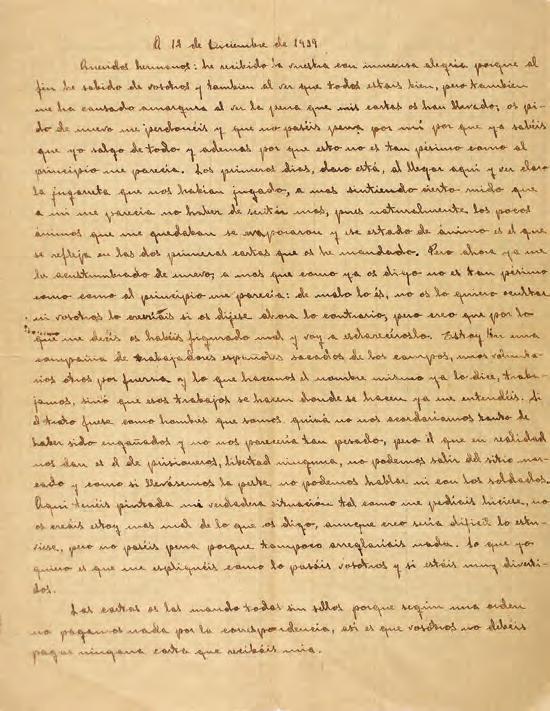 A 12 de Diciembre de 1939
Queridos hermanos: he recibido la vuestra con inmensa alegria porque al
fin he sabido de vosotros y tambien al ver que todos estais bien, pero tambien
me ha causado amargura al ver la pena que mis cartas os han llevado; os pi-
do de nuevo me perdonéis y que no paséis pena por mí por que ya sabéis
que yo salgo de todo y ademas por que esto no es tan pésimo como al
principio me parecia. Los primeros dias, claro está, al llegar aqui y ver claro
la jugarreta que nos habian jugado, a mas sintiendo cierto ruido que
a mi me parecia no haber de sentir mas, pues naturalmente los pocos
ánimos que me quedaban se evaporaron y ese estado de ánimo es el que
se refleja en las dos primeras cartas que os he mandado. Pero ahora ya me
he acostumbrado de nuevo; a mas que como ya os digo no es tan pésimo
como como al principio me parecia: de malo lo és, no os lo quiero ocultar
ni vosotros lo creeriais si os dijese ahora lo contrario, pero creo que por lo
que me decís os habéis figurado mal y voy a esclarecéroslo. Estoy en una
compañia de trabajadores españoles sacados de los campos, unos volunta-
rios otros por fuerza y lo que hacemos el nombre mismo ya lo dice, traba-
jamos, sinó que esos trabajos se hacen donde se hacen ya me entendéis. Si
el trato fuese como hombres que somos quizá no nos acordariamos tanto de
haber sido engañados y no nos pareceria tan pesado, pero el que en realidad
nos dan es el de prisioneros, libertad ninguna, no podemos salir del sitio mar-
cado y como si llevásemos la peste no podemos hablar ni con los soldados.
Aqui tenéis pintada mi verdadera situación tal como me pediais hiciese, no
os creáis estoy mas mal de lo que os digo, aunque creo seria dificil lo estu-
viese, pero no paséis pena porque tampoco arreglariais nada. Lo que yo
quiero es que me espliquéis como lo pasáis vosotros y si estáis muy diverti-
dos.
Las cartas os las mando todas sin sellos porque según una orden
no pagamos nada por la correspondencia, asi es que vosotros no debéis
pagar ninguna carta que recibáis mia.